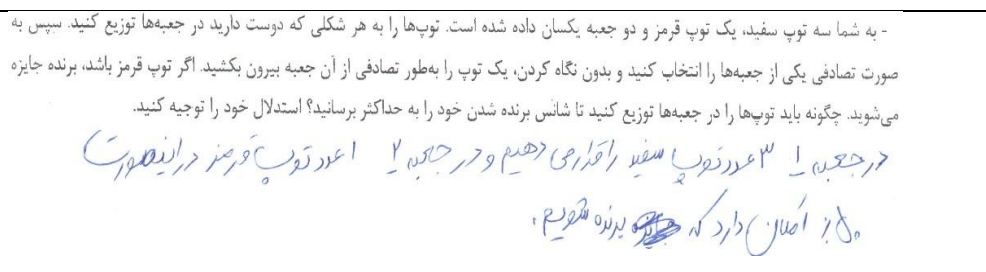 - به شما سه توپ سفید، یک توپ قرمز و دو جعبه یکسان داده شده است. توپ‌ها را به هر شکلی که دوست دارید در جعبه‌ها توزیع کنید. سپس به
صورت تصادفی یکی از جعبه‌ها را انتخاب کنید و بدون نگاه کردن، یک توپ را به‌طور تصادفی از آن جعبه بیرون بکشید. اگر توپ قرمز باشد، برنده جایزه
می‌شوید. چگونه باید توپ‌ها را در جعبه‌ها توزیع کنید تا شانس برنده شدن خود را به حداکثر برسانید؟ استدلال خود را توجیه کنید.
در جعبه 1 ۳ عدد توپ سفید را قرار می دهیم و در جعبه ۲ ۱ عدد توپ قرمز در اینصورت
۵۰٪ امکان دارد که برنده شویم.